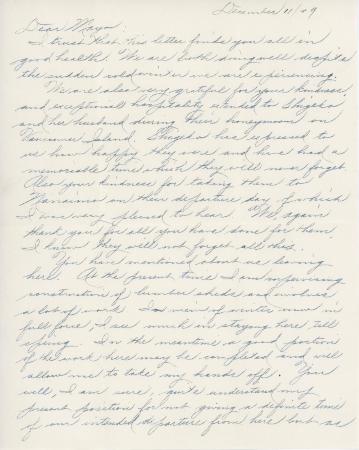 December 11/49
Dear Mayo.
I trust that this letter finds you all in
good health. We are both doing well despite
the sudden cold winter we are experiencing.
We are also very grateful for your kindness
and exceptional hospitality extended to Shigeko
and her husband during their honeymoon on
Vancouver Island. Shigeko has expressed to
us how happy they were and have had a
memorable time which they will never forget.
Also your kindness for taking them to
Nanaimo on their departure day, of which
I was very pleased to hear. We, again
thank you for all you have done for them.
I know they will not forget all this.
You have mentioned about us leaving
here. At the present time I am supervising
construction of lumber sheds and involves
a lot of work. In view of winter now in
full force, I see much in staying here till
spring. In the meantime a good portion
of the work here may be completed and will
allow me to take my hands off. You
will, I am sure, quite understand my
present position for not giving a definite time
of our intended departure from here but as